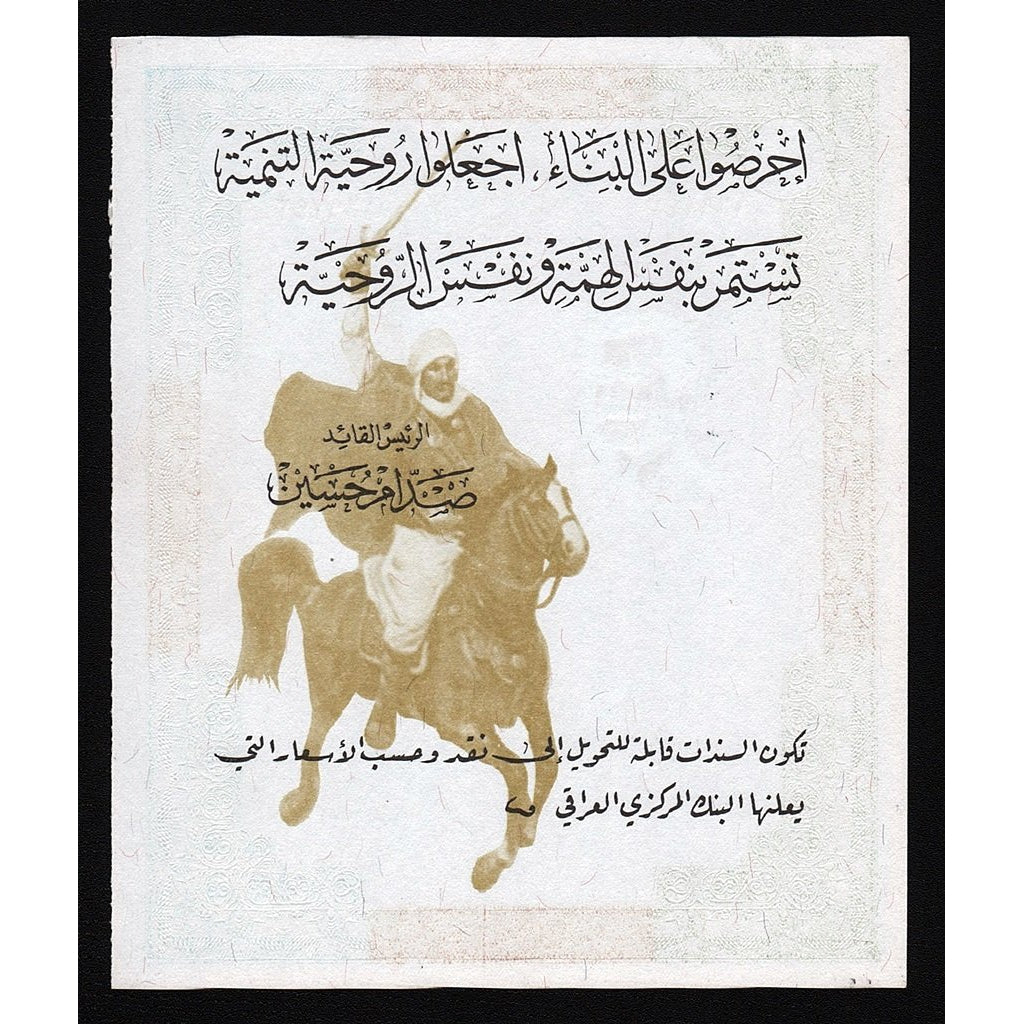 احْرِصُوا عَلَى الْبِنَاءِ، اجعَلوا رُوحيَّة التنميَة
تَسْتَمرَ بنَفْس الهِمَّةِ وَنَفْسَ الرُّوُحيَّة
الرئيسْ القَائِد
صَدَّام حُسَيْن
تكون السندات قابلة للتحويل إلى نقد وحسب الأسعار التي
يعلنها البنك المركزي العراقي